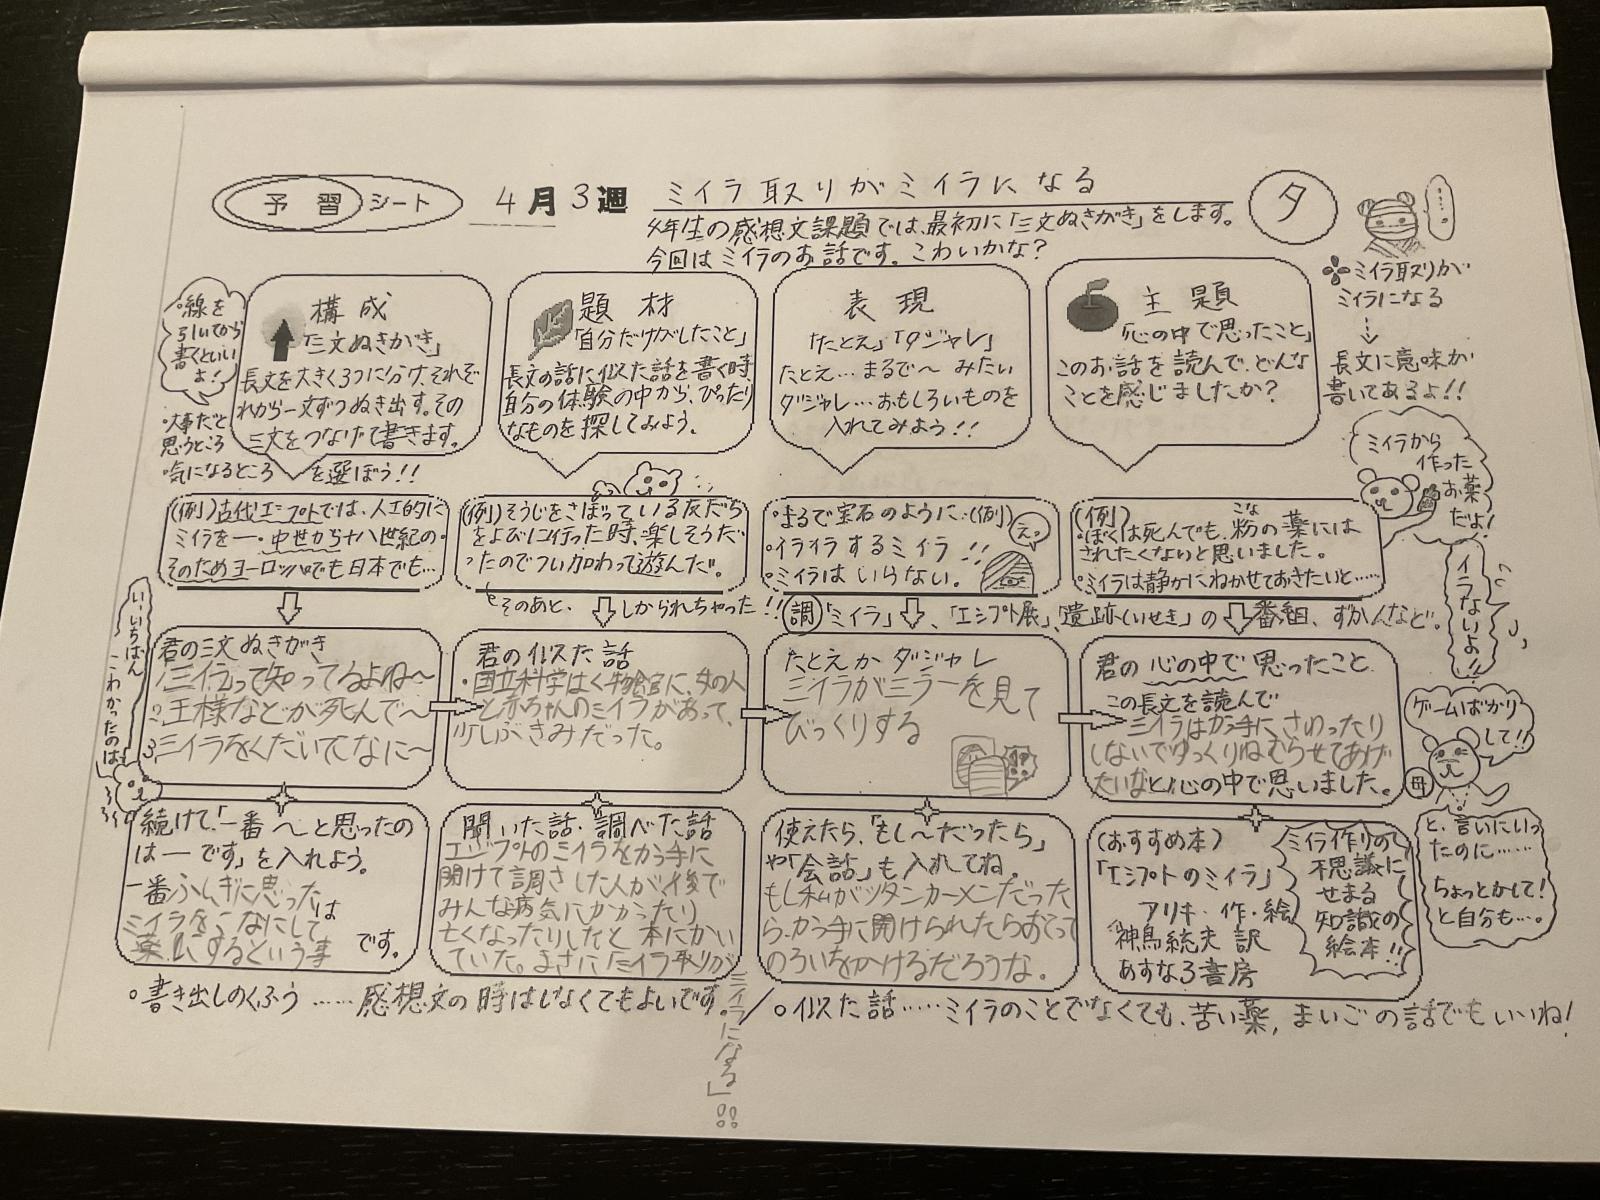 予習シート
4月3週
ミイラ取りがミイラになる
夕
4年生の感想文課題では、最初に「三文ぬきがき」をします。
今回はミイラのお話です。こわいかな？
……
ミイラ取りが
ミイラになる
長文に意味が
書いてあるよ！！
・線を
引いてから
書くといい
よ！
・大事だと
思うところ
・気になるところ
を選ぼう！！
構成
「三文ぬきがき」
長文を大きく3つに分け、それぞ
れから一文ずつぬき出す。その
三文をつなげて書きます。
題材
「自分だけがしたこと」
長文の話に似た話を書く時
自分の体験の中から、ぴったり
なものを探してみよう。
表現
「たとえ」「ダジャレ」
たとえ…まるで〜みたい
ダジャレ…おもしろいものを
入れてみよう！！
主題
「心の中で思ったこと」
このお話を読んで、どんな
ことを感じましたか？
ミイラから
作った
お薬
だよ！
(例)古代エジプトでは、人工的に
ミイラを―・中世から十八世紀の・
そのためヨーロッパでも日本でも…
(例)そうじをさぼっている友だち
をよびに行った時、楽しそうだ
ったのでつい加わって遊んだ。
そのあと、しかられちゃった！！
・まるで宝石のように：(例)
・イライラするミイラ！！
・ミイラはいらない。
えっ
(例)
・ぼくは死んでも、粉の薬には
こな
されたくないと思いました。
・ミイラは静かにねかせておきたいと……
イラないよ！！
調「ミイラ」、「エジプト展」、「遺跡(いせき)」の番組、ずかんなど。
いちばん
こわかったのは
君の三文ぬきがき
1.ミイラって知ってるよね〜
2.王様などが死んで〜
3.ミイラをくだいてなに〜
君の似た話
・国立科学はく物館に、女の人
と赤ちゃんのミイラがあって、
少しぶきみだった。
たとえかダジャレ
ミイラがミラーを見て
びっくりする
君の心の中で思ったこと
この長文を読んで
ミイラはかっ手に、さわったり
しないでゆっくりねむらせてあげ
たいなと心の中で思いました。
ゲームばかり
して！！
母
と、言いにいっ
たのに……
ちょっとかして！
と自分も…。
続けて、「一番〜と思ったの
は―です」を入れよう。
一番ふしぎに思った
ミイラをこなにして
は
薬にするという事
です。
聞いた話・調べた話
エジプトのミイラをかっ手に
開けて調さした人が、後で
みんな病気にかかったり
亡くなったりしたと本にかい
ていた。まさに「ミイラ取りが
ミイラになる」。
使えたら、「もし〜だったら」
や「会話」も入れてね。
もし私がツタンカーメンだった
ら、かっ手に開けられたらおこって
のろいをかけるだろうな。
(おすすめ本)
「エジプトのミイラ」
アリキ・作・絵
神鳥統夫 訳
あすなろ書房
ミイラ作りの
不思議に
せまる
知識の
絵本！！
・書き出しのくふう……感想文の時はしなくてもよいです。
・似た話……ミイラのことでなくても、苦い薬、まいごの話でもいいね！